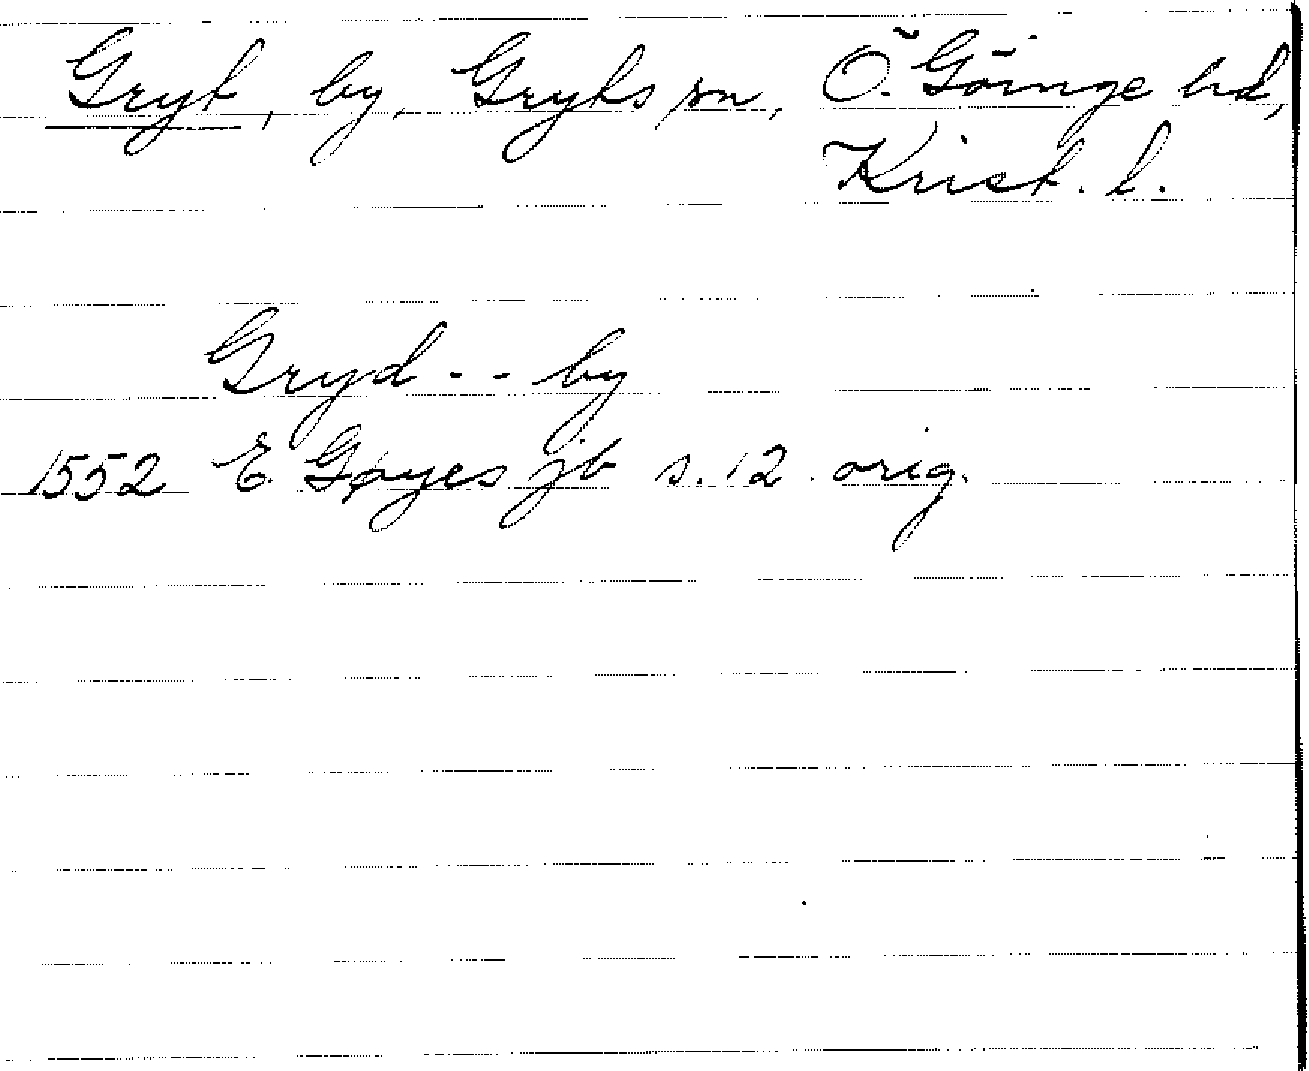 Gryt, by, Gryts sn, Ö. Göinge hd,
Krist. l.
Gryd - - by
1552 E. Gøyes jb s. 12. orig.